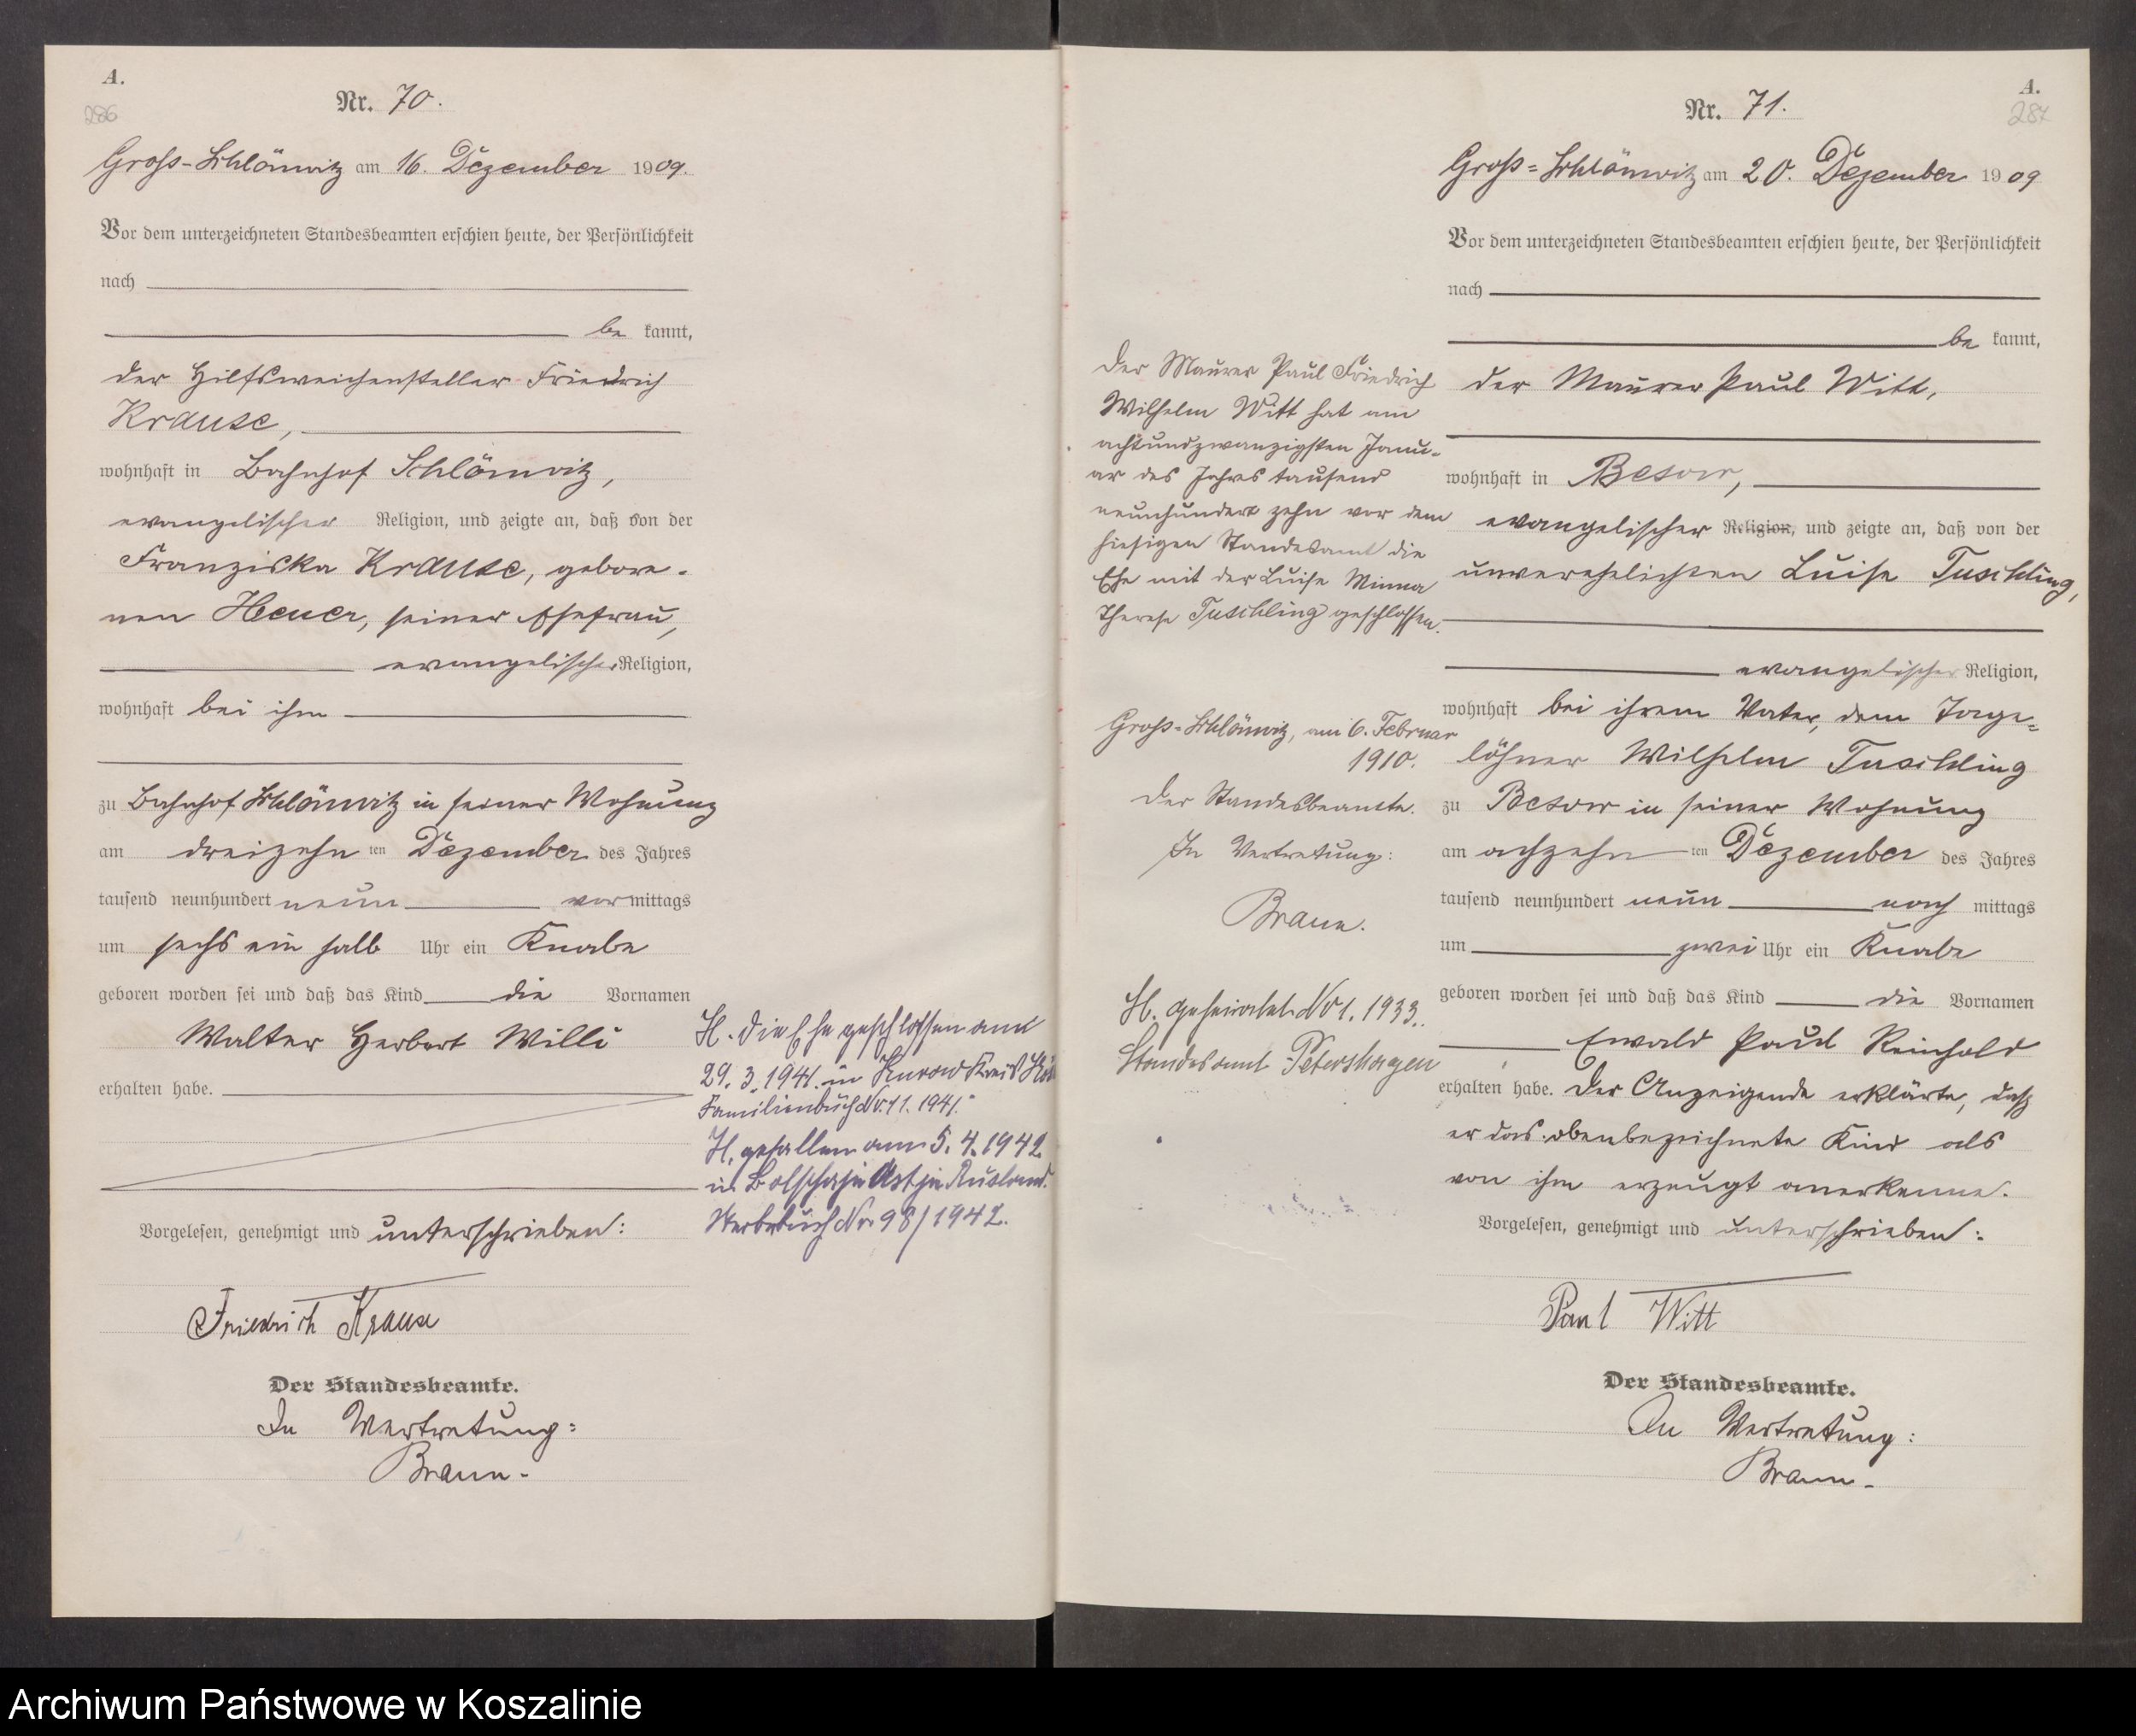 A.
286
Nr. 70.
Gross-Schlönwitz am 16. Dezember 1909.
Vor dem unterzeichneten Standesbeamten erschien heute, der Persönlichkeit
nach
be kannt,
der Hilfsweichensteller Friedrich
Krause,
wohnhaft in Bahnhof Schlönwitz,
evangelischer Religion, und zeigte an, daß von der
Franziska Krause, gebore-
nen Heuer, seiner Ehefrau,
evangelischer Religion,
wohnhaft bei ihm
zu Bahnhof Schlönwitz in seiner Wohnung
am dreizehn ten Dezember des Jahres
tausend neunhundert neun vormittags
um sechs ein halb Uhr ein Knabe
geboren worden sei und daß das Kind die Vornamen
Walter Herbert Willi
erhalten habe.
Vorgelesen, genehmigt und unterschrieben:
Friedrich Krause
Der Standesbeamte.
In Vertretung:
Braun.
H. Die Ehe geschlossen am
29.3.1941. in Kurow Kreis
Familienbuch Nr. 11. 1941.
H. gefallen am 5.4.1942
in Russland.
Sterbebuch Nr. 98/1942.
A.
287
Nr. 71.
Gross-Schlönwitz am 20. Dezember 1909
Vor dem unterzeichneten Standesbeamten erschien heute, der Persönlichkeit
nach
be kannt,
der Maurer Paul Witt,
wohnhaft in Besow,
evangelischer Religion, und zeigte an, daß von der
unverehelichten Luise Tuschling,
evangelischer Religion,
wohnhaft bei ihrem Vater, dem Tage-
löhner Wilhelm Tuschling
zu Besow in seiner Wohnung
am achzehn ten Dezember des Jahres
tausend neunhundert neun nach mittags
um zwei Uhr ein Knabe
geboren worden sei und daß das Kind die Vornamen
Ewald Paul Reinhold
erhalten habe. Der Anzeigende erklärte, daß
er das obenbezeichnete Kind als
von ihm erzeugt anerkenne.
Vorgelesen, genehmigt und unterschrieben:
Paul Witt
Der Standesbeamte.
In Vertretung:
Braun.
Der Maurer Paul Friedrich
Wilhelm Witt hat am
achtundzwanzigsten Janu-
ar des Jahres tausend
neunhundert zehn vor dem
hiesigen Standesamt die
Ehe mit der Luise Minna
Therese Tuschling geschlossen.
Gross-Schlönwitz, am 6. Februar
1910.
Der Standesbeamte.
In Vertretung:
Braun.
H. geheiratet Nr 1. 1933.
Standesamt Petershagen
Archiwum Państwowe w Koszalinie